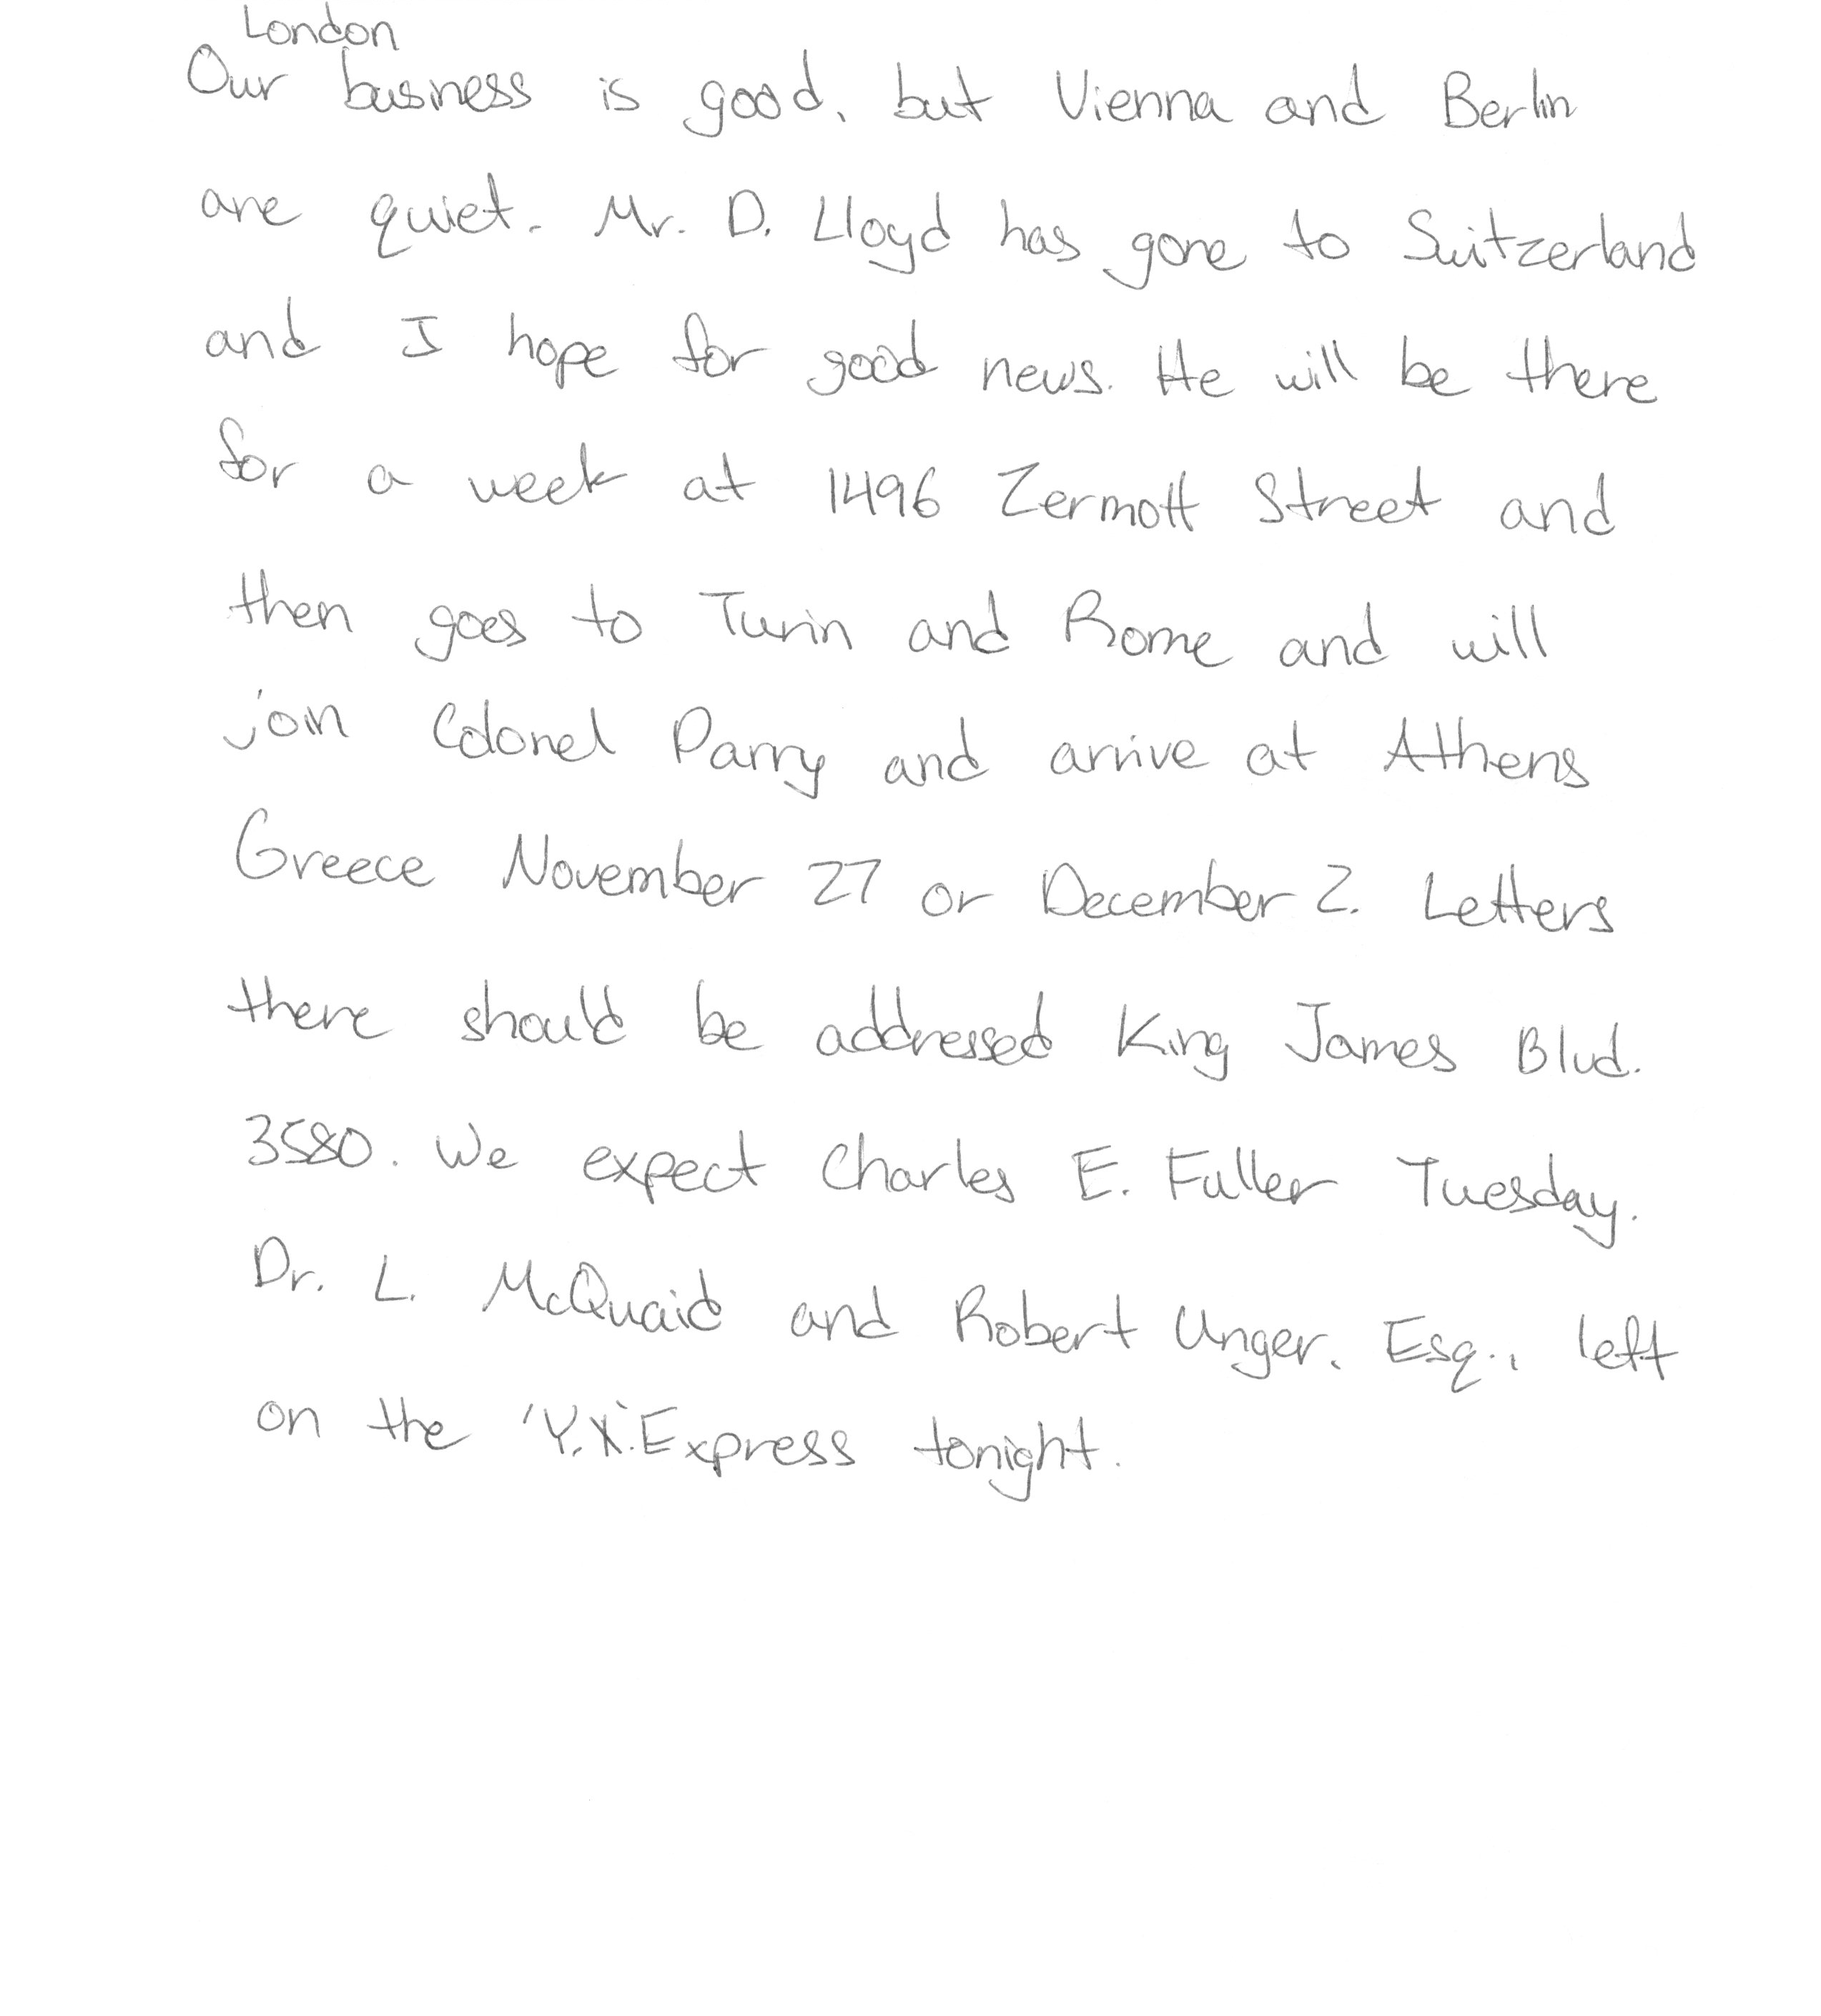 London
Our business is good, but Vienna and Berlin
are quiet. Mr. D. Lloyd has gone to Switzerland
and I hope for good news. He will be there
for a week at 1496 Zermott Street and
then goes to Turin and Rome and will
join Colonel Parry and arrive at Athens
Greece November 27 or December 2. Letters
there should be addressed King James Blvd.
3580. We expect Charles E. Fuller Tuesday.
Dr. L. McQuaid and Robert Unger, Esq., left
on the 'Y.X.' Express tonight.